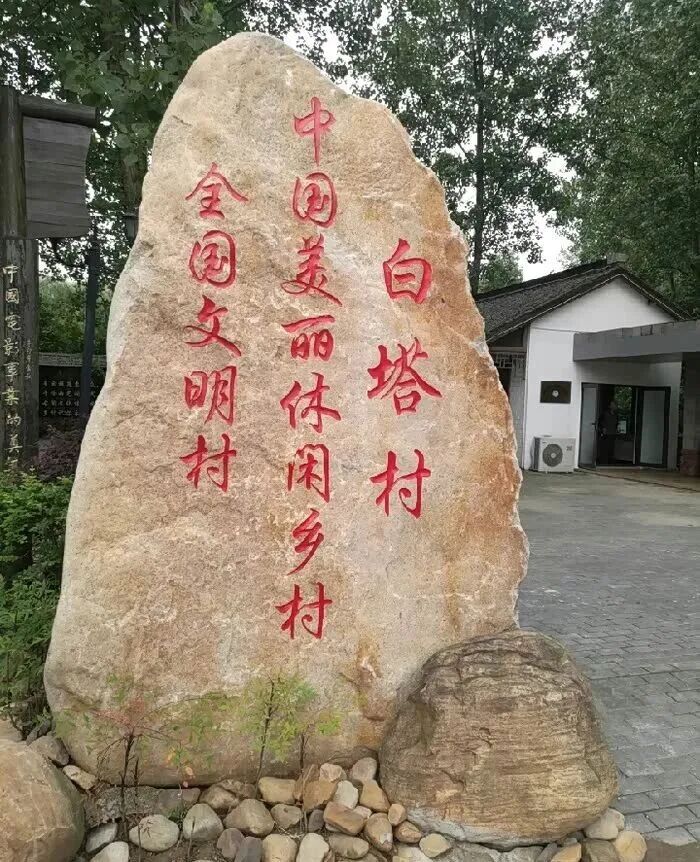 白塔村
中国美丽休闲乡村
全国文明村
中國電影事業的美